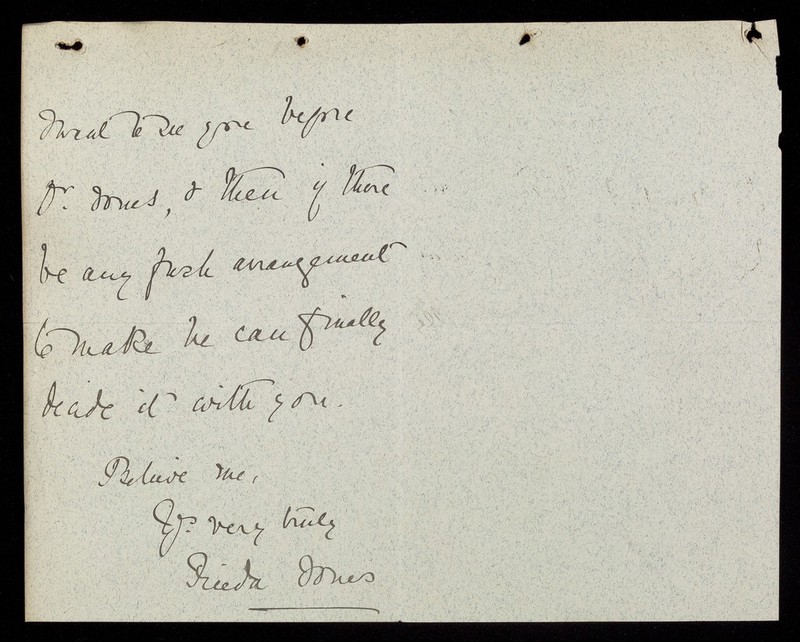 to see you before
Dr. Jones, & then if there
be any fresh arrangement
to make he can finally
decide it with you.
Believe me,
Yrs very truly
Frieda Jones